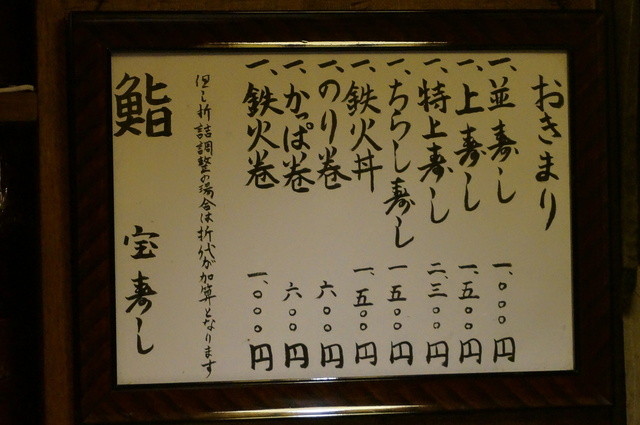 おきまり
一、並寿し 一、〇〇〇円
一、上寿し 一、五〇〇円
一、特上寿し 二、三〇〇円
一、ちらし寿し 一、五〇〇円
一、鉄火丼 一、五〇〇円
一、のり巻 六〇〇円
一、かっぱ巻 六〇〇円
一、鉄火巻 一、〇〇〇円
但し折詰調整の場合は折代が加算となります
鮨 宝寿し